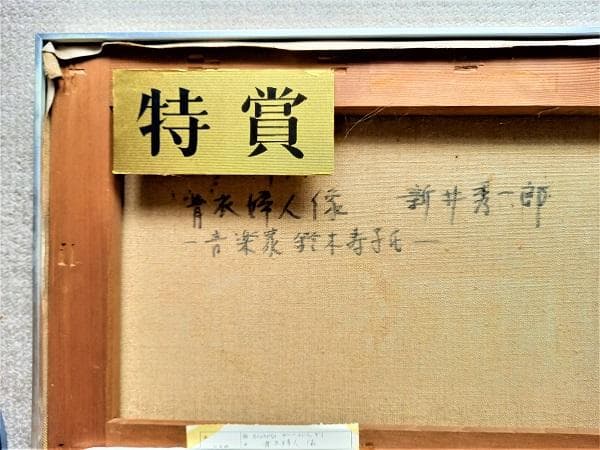 特賞
青衣婦人像 新井秀一郎
―音楽家 鈴木寿子氏―